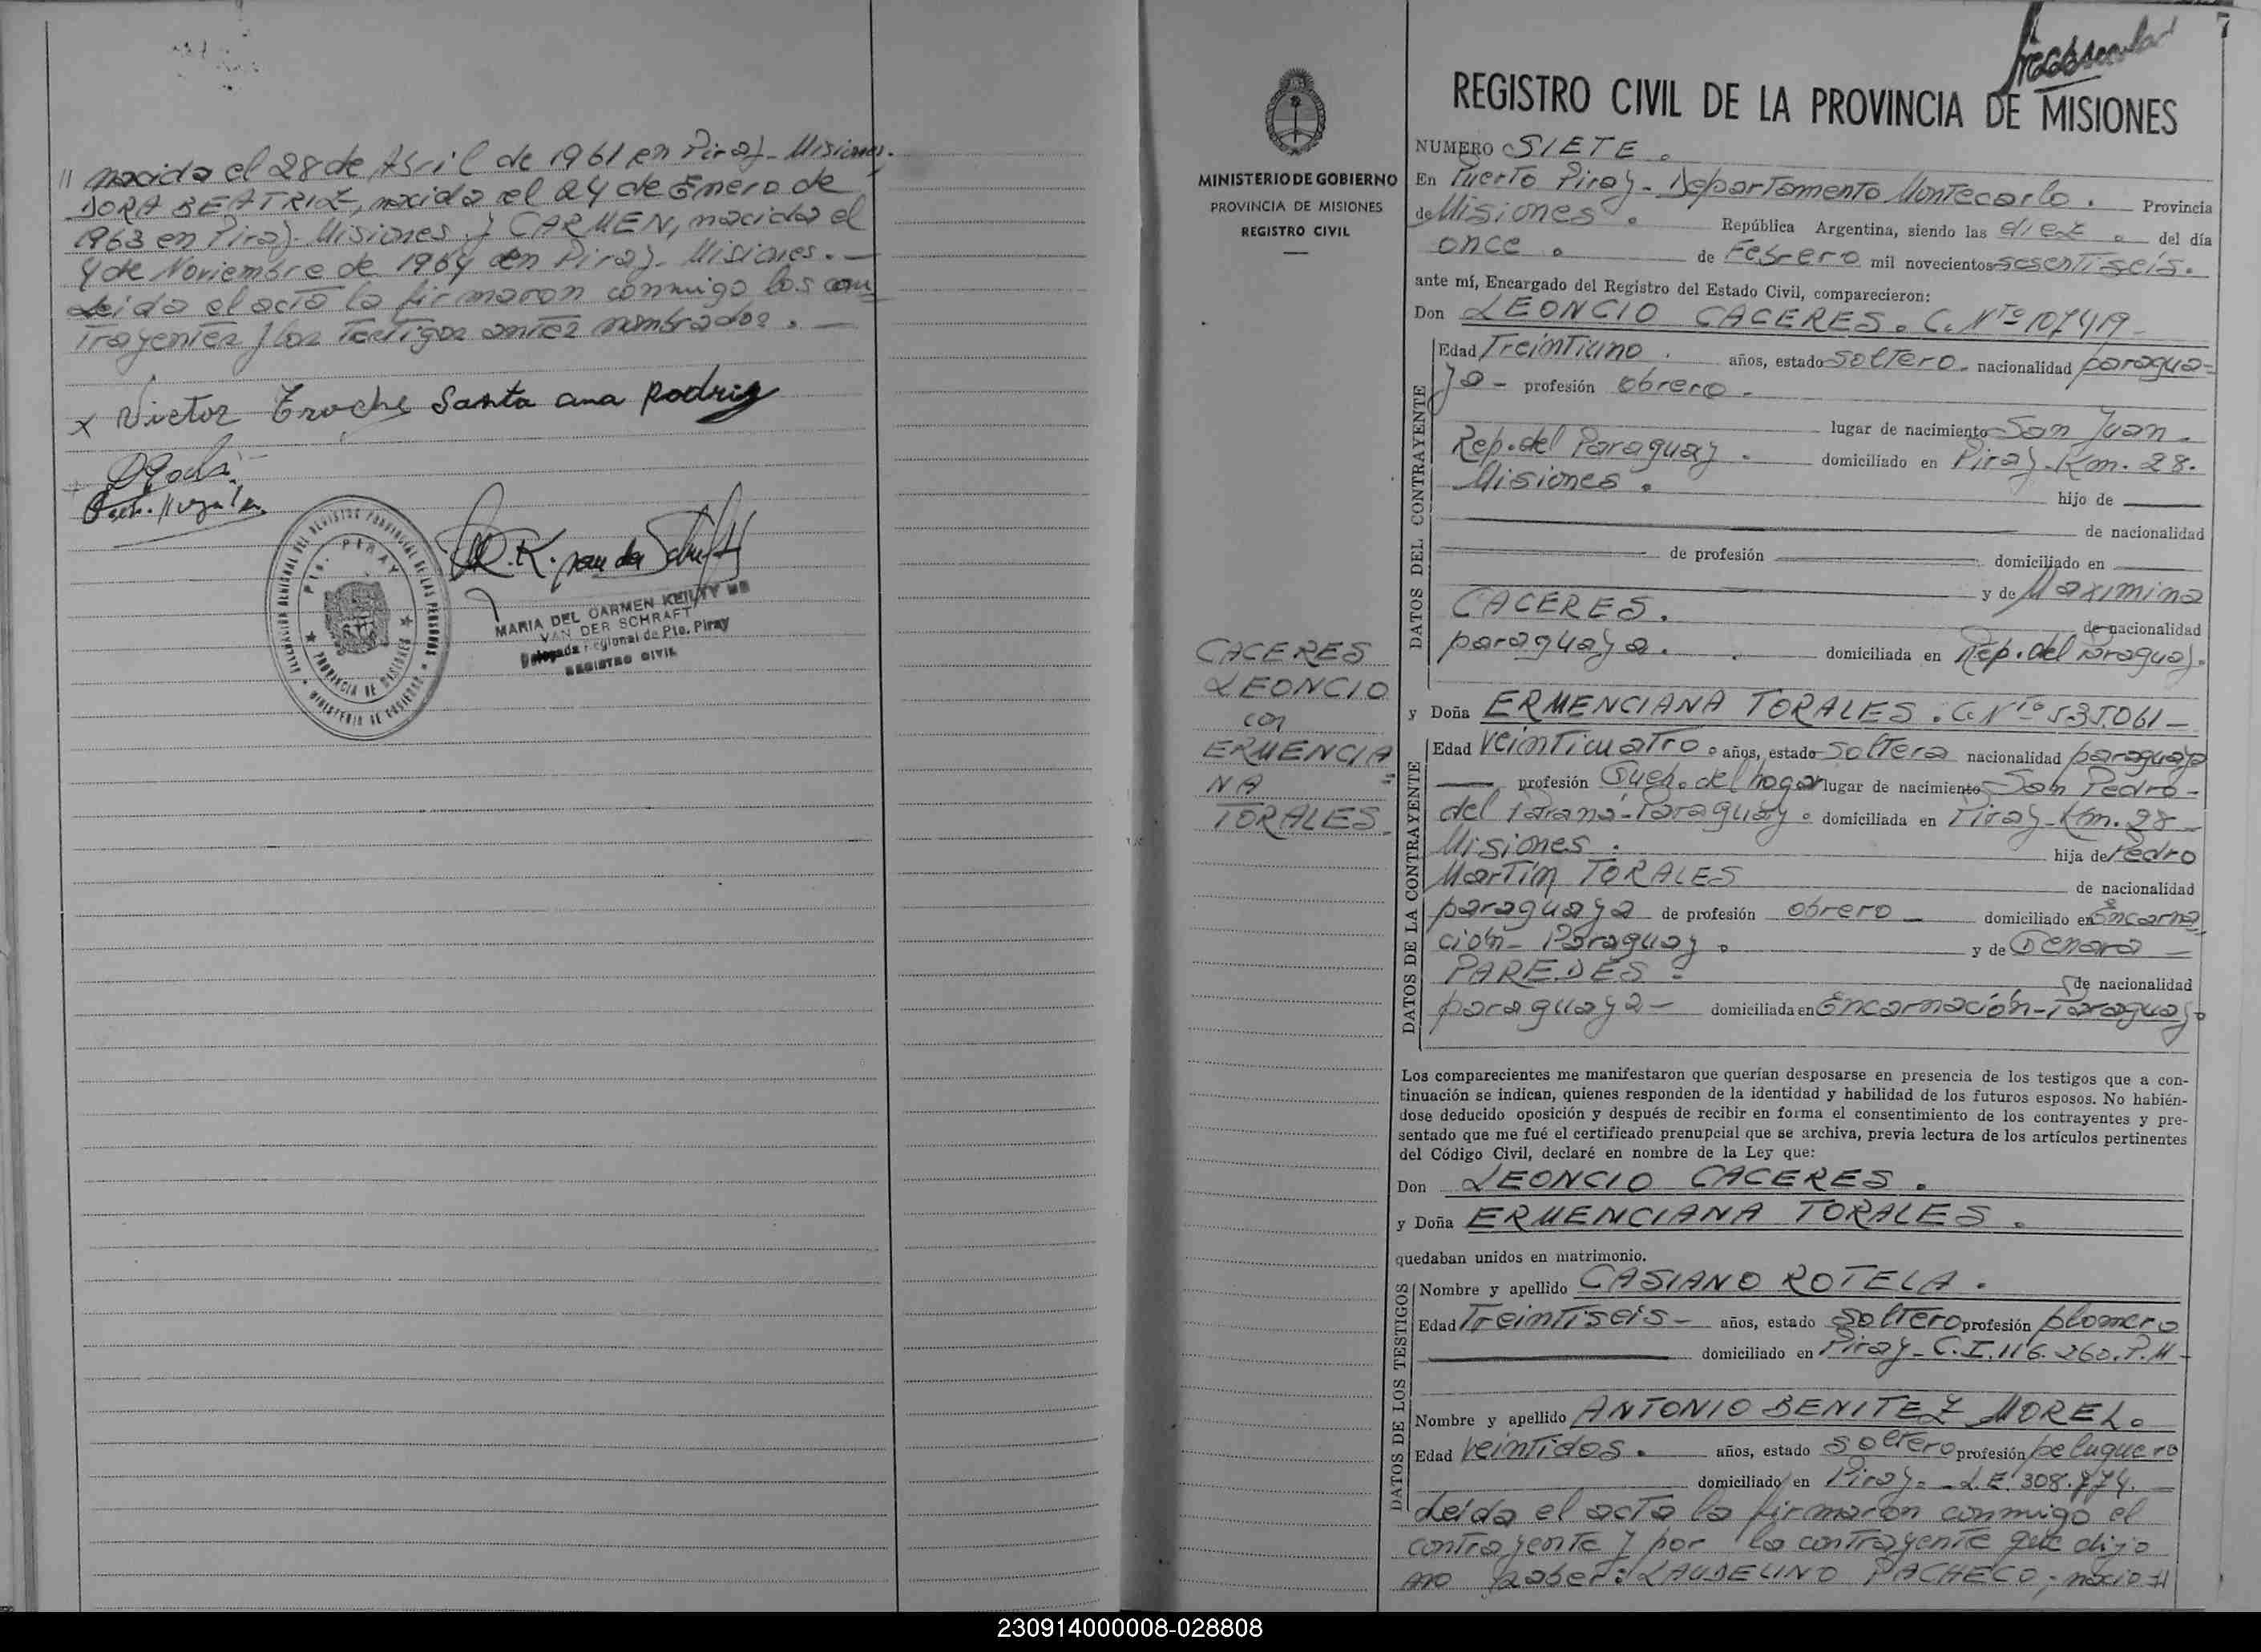 // nacida el 28 de Abril de 1961 en Piray- Misiones.
DORA BEATRIZ, nacida el 24 de Enero de
1963 en Piray- Misiones. y CARMEN, nacida el
4 de Noviembre de 1964 en Piray- Misiones.-
Leida el acta la firmaron conmigo los con-
trayentes y los testigos antes nombrados.-
x Victor Troche Santa ana Rodrig
PTO. PIRAY
PROVINCIA DE MISIONES
MINISTERIO DE GOBIERNO
MARIA DEL CARMEN KEILTY DE
VAN DER SCHRAFT
Delegada Regional de Pto. Piray
REGISTRO CIVIL
7
MINISTERIO DE GOBIERNO
PROVINCIA DE MISIONES
REGISTRO CIVIL
CACERES
LEONCIO
con
ERMENCIA=
NA
TORALES.
REGISTRO CIVIL DE LA PROVINCIA DE MISIONES
NUMERO SIETE.
En Puerto Piray- Departamento Montecarlo. Provincia
de Misiones. República Argentina, siendo las diez. del día
once. de Febrero mil novecientos sesentiseis.
ante mí, Encargado del Registro del Estado Civil, comparecieron:
Don LEONCIO CACERES. C. Nº 107419-
DATOS DEL CONTRAYENTE
Edad Treintiuno. años, estado soltero. nacionalidad paragua=
ya- profesión obrero.-
lugar de nacimiento San Juan.
Rep. del Paraguay. domiciliado en Piray- Km. 28.
Misiones. hijo de
de nacionalidad
de profesión domiciliado en
y de Maximina
CACERES. de nacionalidad
paraguaya. domiciliada en Rep. del Paraguay.
y Doña ERMENCIANA TORALES. C. Nº 535.061-
DATOS DE LA CONTRAYENTE
Edad veinticuatro. años, estado soltera nacionalidad paraguaya
profesión Queh. del hogar lugar de nacimiento San Pedro-
del Paraná- Paraguay. domiciliada en Piray- Km. 28-
Misiones. hija de Pedro
Martín TORALES de nacionalidad
paraguaya de profesión obrero- domiciliado en Encarna=
ción- Paraguay. y de Denara-
PAREDES. de nacionalidad
paraguaya- domiciliada en Encarnación- Paraguay.
Los comparecientes me manifestaron que querían desposarse en presencia de los testigos que a con-
tinuación se indican, quienes responden de la identidad y habilidad de los futuros esposos. No habién-
dose deducido oposición y después de recibir en forma el consentimiento de los contrayentes y pre-
sentado que me fué el certificado prenupcial que se archiva, previa lectura de los artículos pertinentes
del Código Civil, declaré en nombre de la Ley que:
Don LEONCIO CACERES.
y Doña ERMENCIANA TORALES.
quedaban unidos en matrimonio.
DATOS DE LOS TESTIGOS
Nombre y apellido CASIANO ROTELA.
Edad Treintiseis- años, estado soltero profesión plomero
domiciliado en Piray- C.I. 116.260. P.M-
Nombre y apellido ANTONIO BENITEZ MOREL.
Edad veintidos. años, estado soltero profesión peluquero
domiciliado en Piray- L.E. 308.774.-
Leida el acta la firmaron conmigo el
contrayente y por la contrayente que dijo
no saber: LAUDELINO PACHECO; nacio //
230914000008-028808